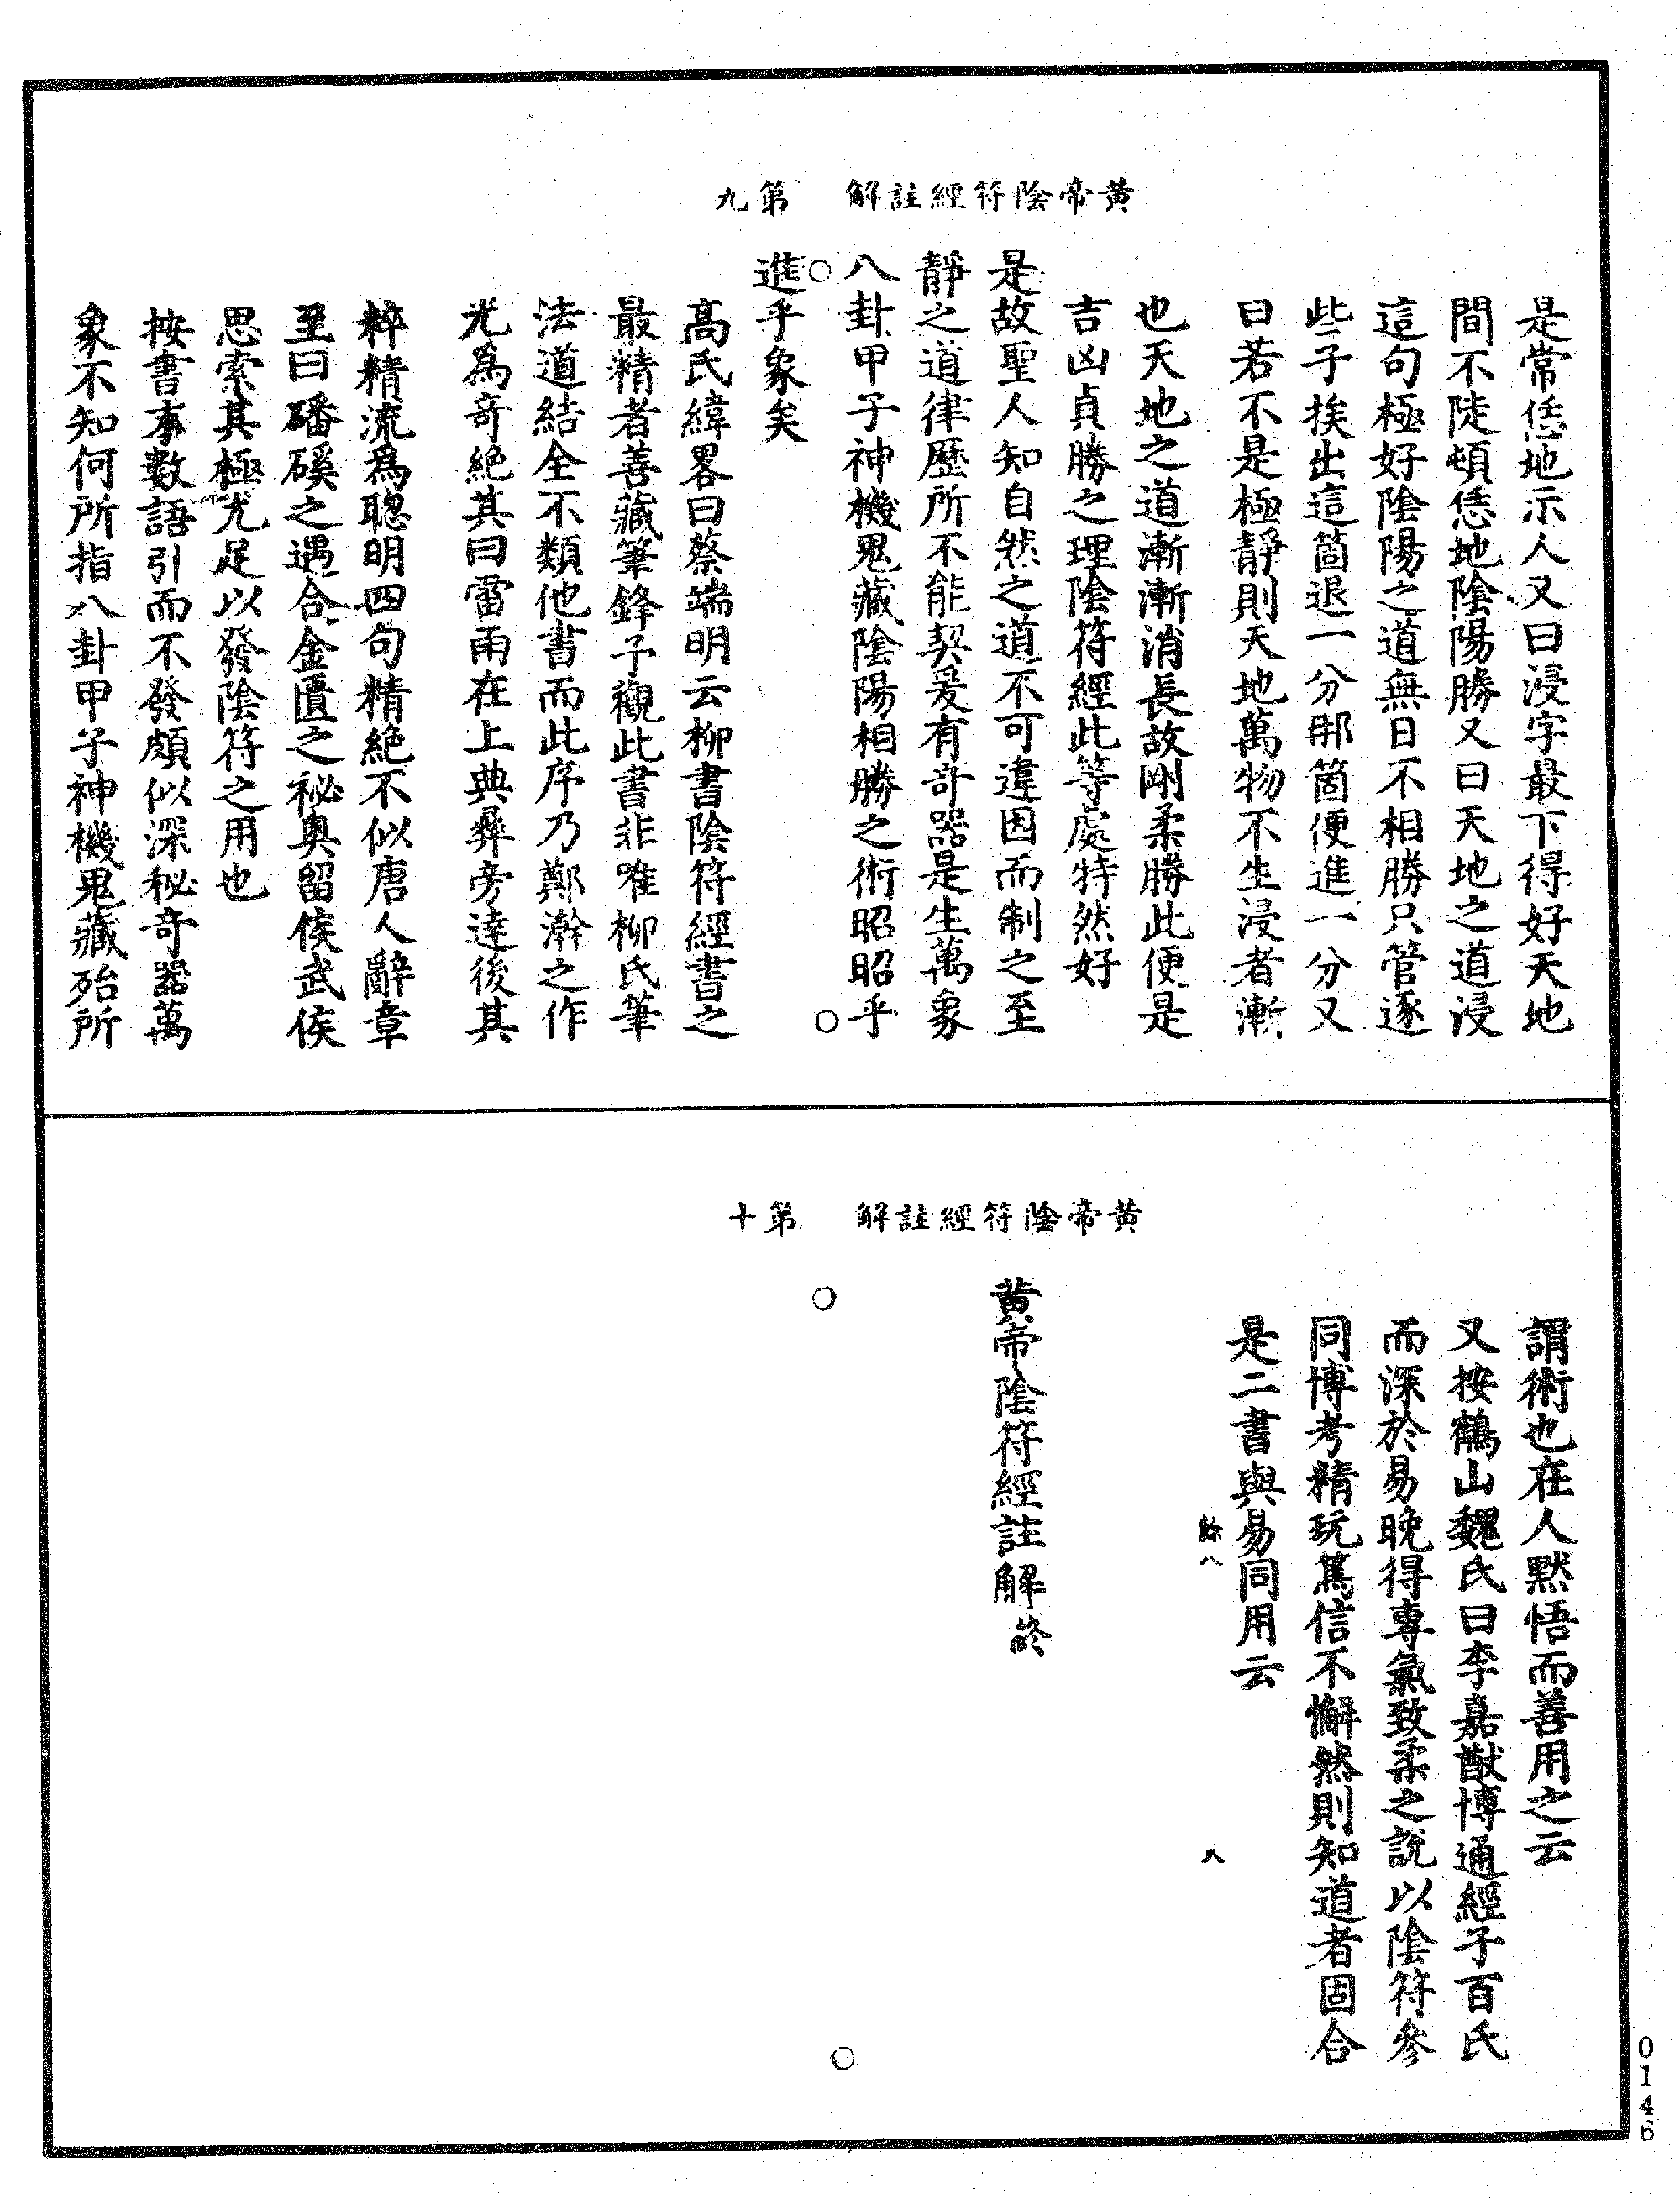 黄帝陰符經註解　第九
是常恁地示人又曰浸字最下得好天地
間不陡頓恁地陰陽勝又曰天地之道浸
這句極好陰陽之道無日不相勝只管逐
些子挨出這箇退一分那箇便進一分又
曰若不是極靜則天地萬物不生浸者漸
也天地之道漸漸消長故剛柔勝此便是
吉凶貞勝之理陰符經此等處特然好
是故聖人知自然之道不可違因而制之至
靜之道律曆所不能契爰有奇器是生萬象
八卦甲子神機鬼藏陰陽相勝之術昭昭乎
進乎象矣
髙氏緯畧曰蔡端明云柳書陰符經書之
最精者善藏筆鋒予觀此書非唯柳氏筆
法道結全不類他書而此序乃鄭澣之作
尤爲奇絶其曰雷雨在上典彝旁達後其
粹精流爲聰明四句精絶不似唐人辭章
至曰磻磎之遇合金匱之秘奥留侯武侯
思索其極尤足以發陰符之用也
按書末數語引而不發頗似深秘奇器萬
象不知何所指八卦甲子神機鬼藏殆所
黄帝陰符經註解　第十
謂術也在人默悟而善用之云
又按鶴山魏氏曰李嘉猷博通經子百氏
而深於易晚得專氣致柔之說以陰符參
同博考精玩篤信不懈然則知道者固合
是二書與易同用云
餘八　八
黄帝陰符經註解終
0146